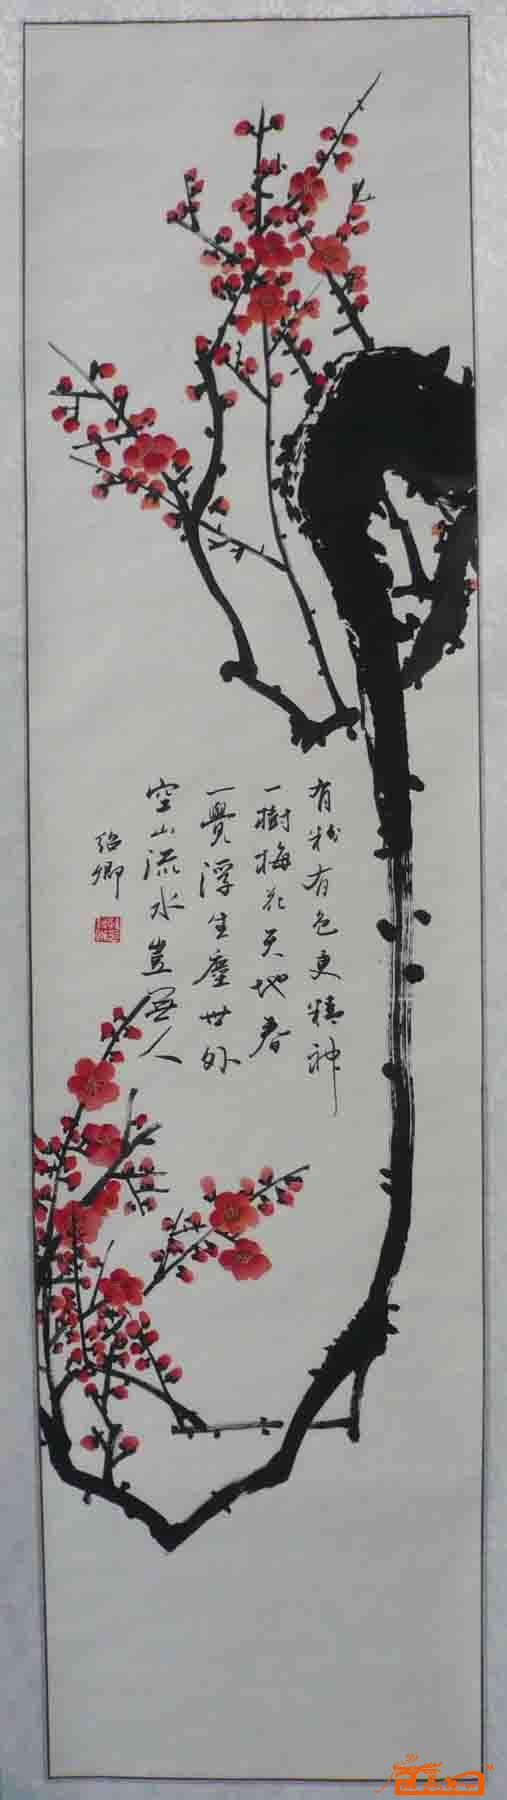 有粉有色更精神
一樹梅花天地春
一覺浮生塵世外
空山流水豈無人
紹卿